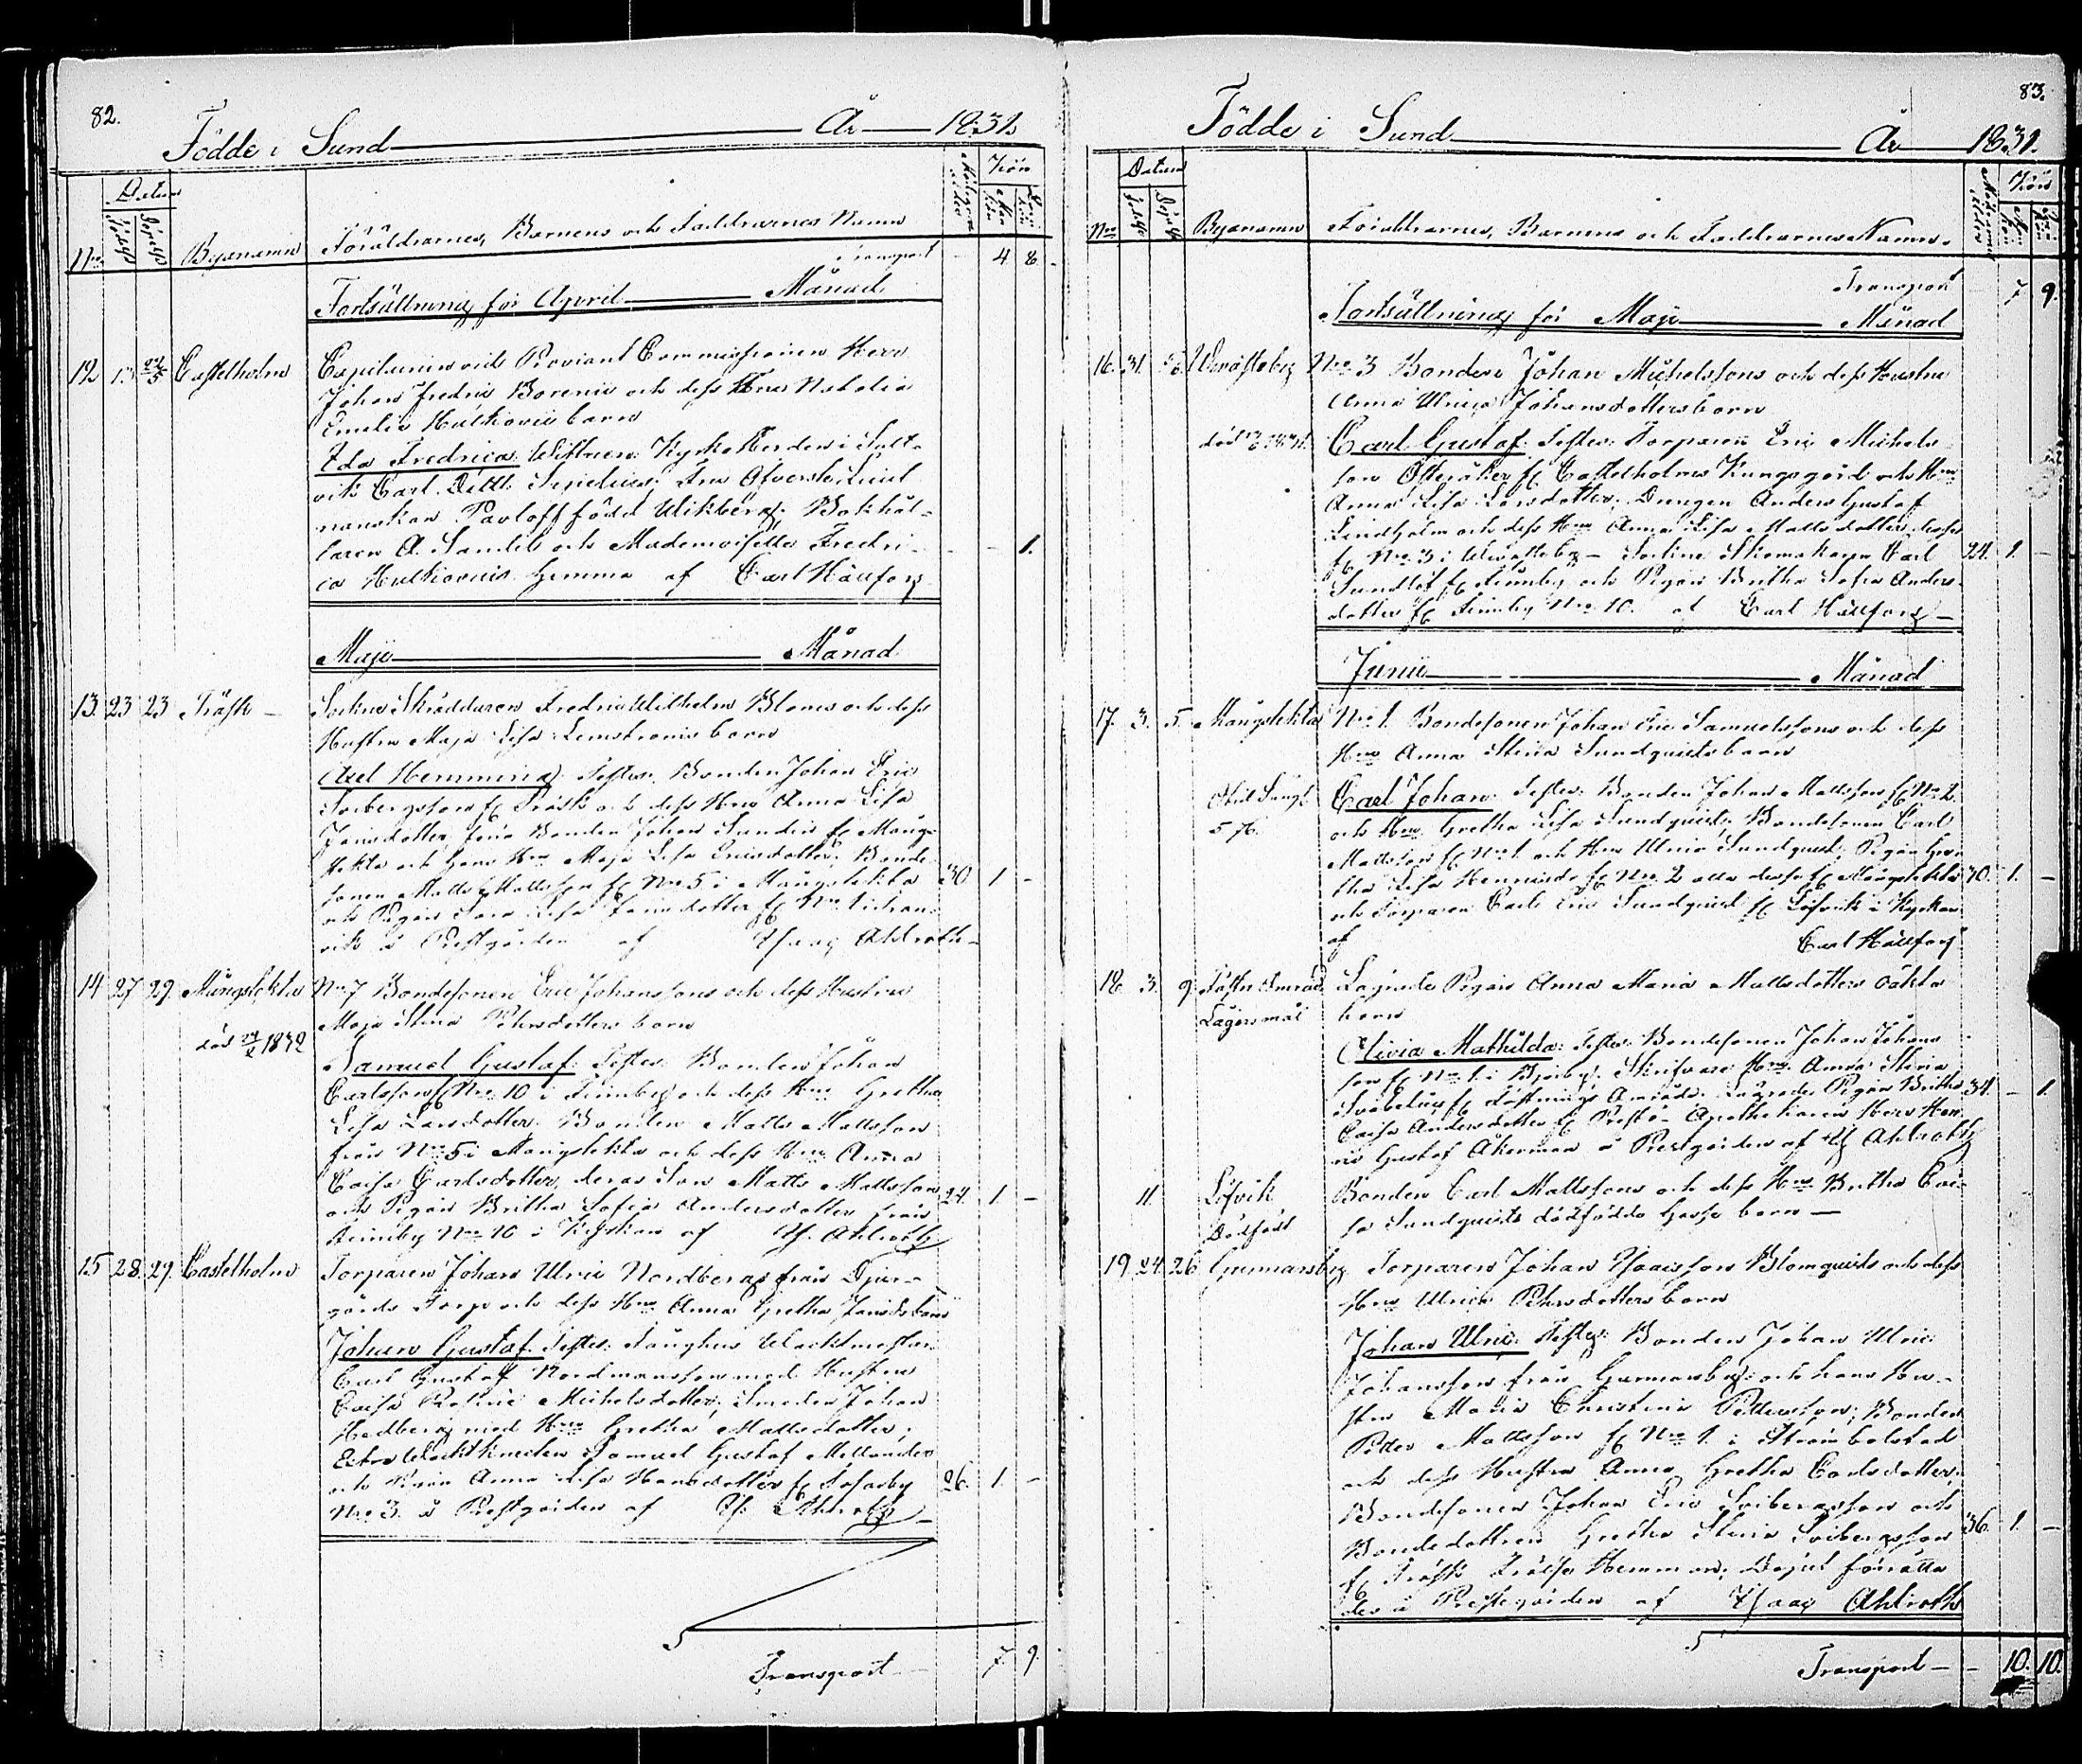 82.
Födde i Sund År 1831.
Datum
Kön
Nro
Födelse
Döpelse
Byanamn
Föräldrarnes, Barnens och Faddrarnes Namn
Moderns ålder
Man kön
Qvin kön
Transport - 4 8
Fortsättning för April Månad
12 13 22/5 Castelholm Capitainen vid Proviant Commissionen Herr
Johan Fredric Borenii och dess Fru Natalia
Emelie Hulkovii barn
Ida Fredrica. Wittnen: Kyrkoherden i Salt-
vik Carl Fru Öfverste Lieut
nanskan Pavloff född Wikberg. Bokhål-
laren A. Sandel och Mademoiselle Fredri- - - 1.
ca Hulkovius. Hemma af Carl Hällfors
Maji Månad
13. 23 23 Träsk - Sockne Skräddaren Fredric Wilhelm Bloms och dess
Hustru Maja Lisa Lemströms barn
Axel Hemming. Testes: Bonden Johan Eric
fr Träsk och dess Hru Anna Lisa
Jansdotter, förra Bonden Johan Sundin fr Mång-
stekta och hans Hru Maja Lisa Ericsdotter. Bonde
sonen Matts Mattsson fr Nro 5 i Mångstekta 30 1 -
och Pigan Lisa fr Nro 1 i
vik i Prestgården af Isaac Ahlroth
14 27 29. Mångstekta Nro 7 Bondesonen Eric Johanssons och dess Hustrus
Maja Stina Pehrsdotters barn
död 1832
Samuel Gustaf: Testes: Bonden Johan
Carlsson fr Nro 10 i Finnby och dess Hru Gretha
Lisa Larsdotter. Bonden Matts Mattsson
från Nro 5 i Mångstekta och dess Hru Anna
Caisa Carlsdotter, deras Son Matts Mattsson 24. 1. -
och Pigan Britha Sofia Andersdotter från
Finnby Nro 10 i Kyrkan af Is. Ahlroth
15 28. 29. Castelholm Torparen Johan Ulric Nordbergs från Djur-
gårds Torp och dess Hru Anna Gretha Jansds barn
Johan Gustaf. Testes: Fånghus Wachtmestar
Carl Gustaf Nordmansson med Hustru
Caisa Michelsdotter; Smeden Johan
Hedberg med Hru Gretha Mattsdotter;
Extra Wachtknekten Samuel Gustaf Mellander
och Pigan Anna Lisa Hansdotter fr Tosarby 26. 1. -
Nro 3. i Prestgården af Is. Ahlroth
Transport 7. 9.
83.
Födde i Sund År 1831.
Datum
Kön
Nro
Födelse
Döpelse
Byanamn
Föräldrarnes, Barnens och Faddrarnes Namn.
Moderns ålder
Man kön
Qvin kön
Transport 7 9.
Fortsättning för Maji Månad
16. 31. Nro 3 Bonden Johan Michelssons och dess Hustru
Anna Ulrica Johansdotters barn
död 1831. Carl Gustaf. Testes: Torparen Eric Michels-
son Österåker fr Castelholms Kungsgård och Hru
Anna Lisa Larsdotter; Drengen Anders Gustaf
Lindholm och dess Hru Anna Lisa Mattsdotter, desse
fr Nro 3 i Skomakaren Carl 24. 1. -
Sundlöf fr Finnby och Pigan Britha Sofia Anders-
dotter fr Finnby Nro 10. af Carl Hällfors
Junii Månad
17. 3. 5. Mångstekta Nro 1. Bondesonen Johan Eric Samuelssons och dess
Hru Anna Stina Sundquists barn
Carl Johan: Testes: Bonden Johan Mattsson fr Nro 2
5/76.
och Hru Gretha Lisa Sundquist, Bondesonen Carl
Mattsson fr Nro 1 och Hru Ulrica Sundquist, Pigan Gre-
tha Lisa fr Nro 2 alla desse fr Mångstekta 30. 1. -
och Torparen Carl Eric Sundquist fr Löfvik i Kyrkan
af Carl Hällfors
18 3. 9. Lägersmål Lägrade Pigan Anna Maria Mattsdotters oäkta
barn
Olivia Mathilda: Testes: Bondesonen Johan Johans
son fr Nro 1 i Hru Anna Stina
fr Lägrade Pigan Britha 34. - 1.
Caisa Andersdotter fr Prestö. Apothekaren Herr Hen
ric Gustaf Åkerman i Prestgården af Is Ahlroth
11. Löfvik Bonden Carl Mattssons och dess Hru Britha Cai-
Dödfödt sa Sundquists dödfödda Gosse barn —
19. 24. 26. Gunnarsby Torparen Johan Isaacsson Blomquists och dess
Hru Ulrica Pehrsdotters barn
Johan Ulric. Testes: Bonden Johan Ulric
Johansson från Gunnarsby och hans Hu-
stru Maria Christina Pettersson; Bonden
Petter Mattsson fr Nro 1. i Strömbolstad
och dess Hustru Anna Gretha Carlsdotter,
Bondesonen Johan Eric och
Bondedottren Gretha Stina 36. 1. -
fr Träsk Frälse Hemman; Dopet förrätta
des i Prestegården af Isaac Ahlroth
Transport - - 10. 10.